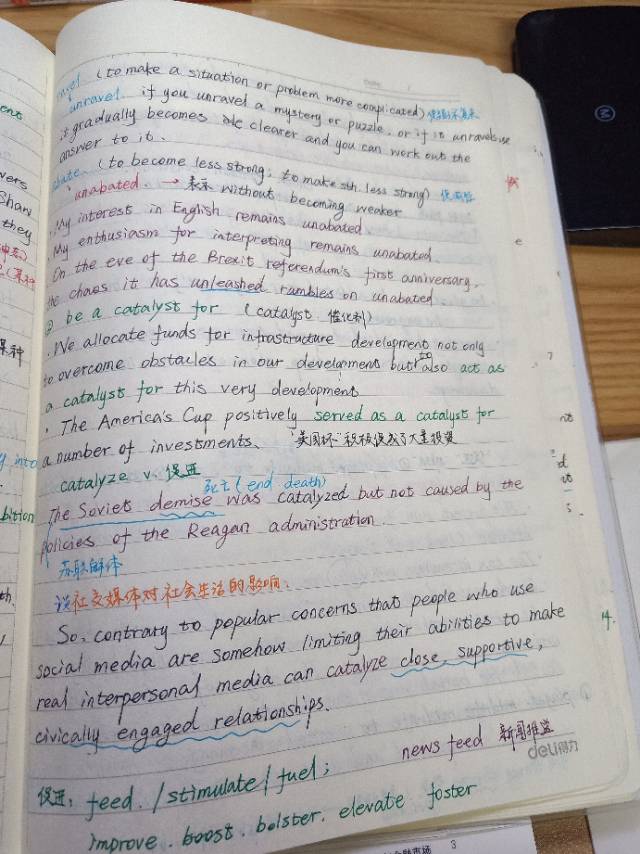 (to make a situation or problem more complicated)
unravel. if you unravel a mystery or puzzle, or if it unravels
it gradually becomes clearer and you can work out the
answer to it.
(to become less strong; to make sth. less strong) 使减弱
unabated. → 表示 without becoming weaker
My interest in English remains unabated.
My enthusiasm for interpreting remains unabated.
On the eve of the Brexit referendum's first anniversary,
the chaos it has unleashed rambles on unabated.
② be a catalyst for (catalyst 催化剂)
We allocate funds for infrastructure development not only
to overcome obstacles in our development but also to act as
a catalyst for this very development
The America's Cup positively served as a catalyst for
a number of investments. "美国杯"积极促成了大量投资
catalyze v. 促进
死亡 (end death)
The Soviet demise was catalyzed but not caused by the
policies of the Reagan administration.
苏联解体
谈社交媒体对社会生活的影响:
So, contrary to popular concerns that people who use
social media are somehow limiting their abilities to make
real interpersonal media can catalyze close, supportive,
civically engaged relationships.
news feed 新闻推送
deli得力
促进: feed. / stimulate / fuel;
improve. boost. bolster. elevate foster
vers
Shar
they
某种
into
bition
th.
3